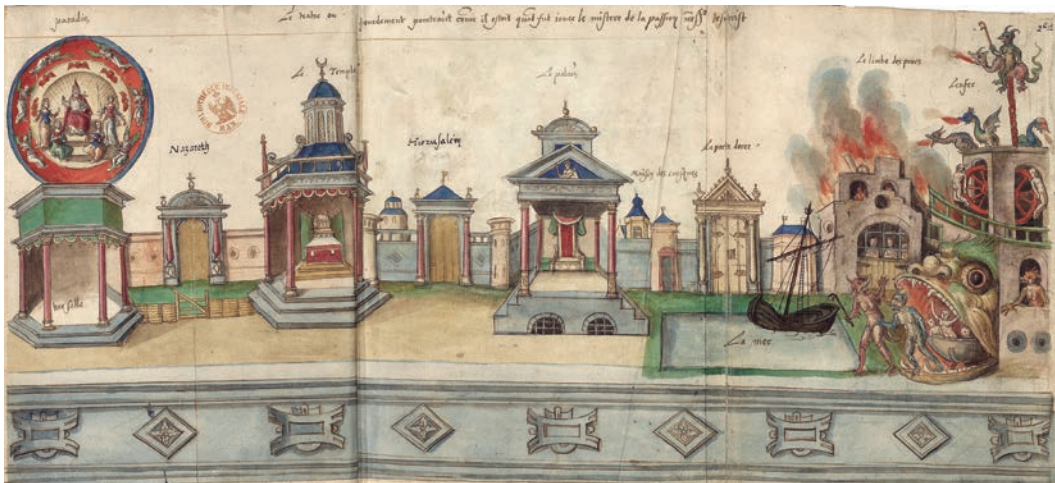 paradis
Le teatre ou hourdement pourtraict come il estoit quant fut ioue le mistere de la passion
Le Temple
Nazareth
Hierusalem
Le palais
Maison des evesques
La porte doree
Le limbe des peres
Lenfer
La mer